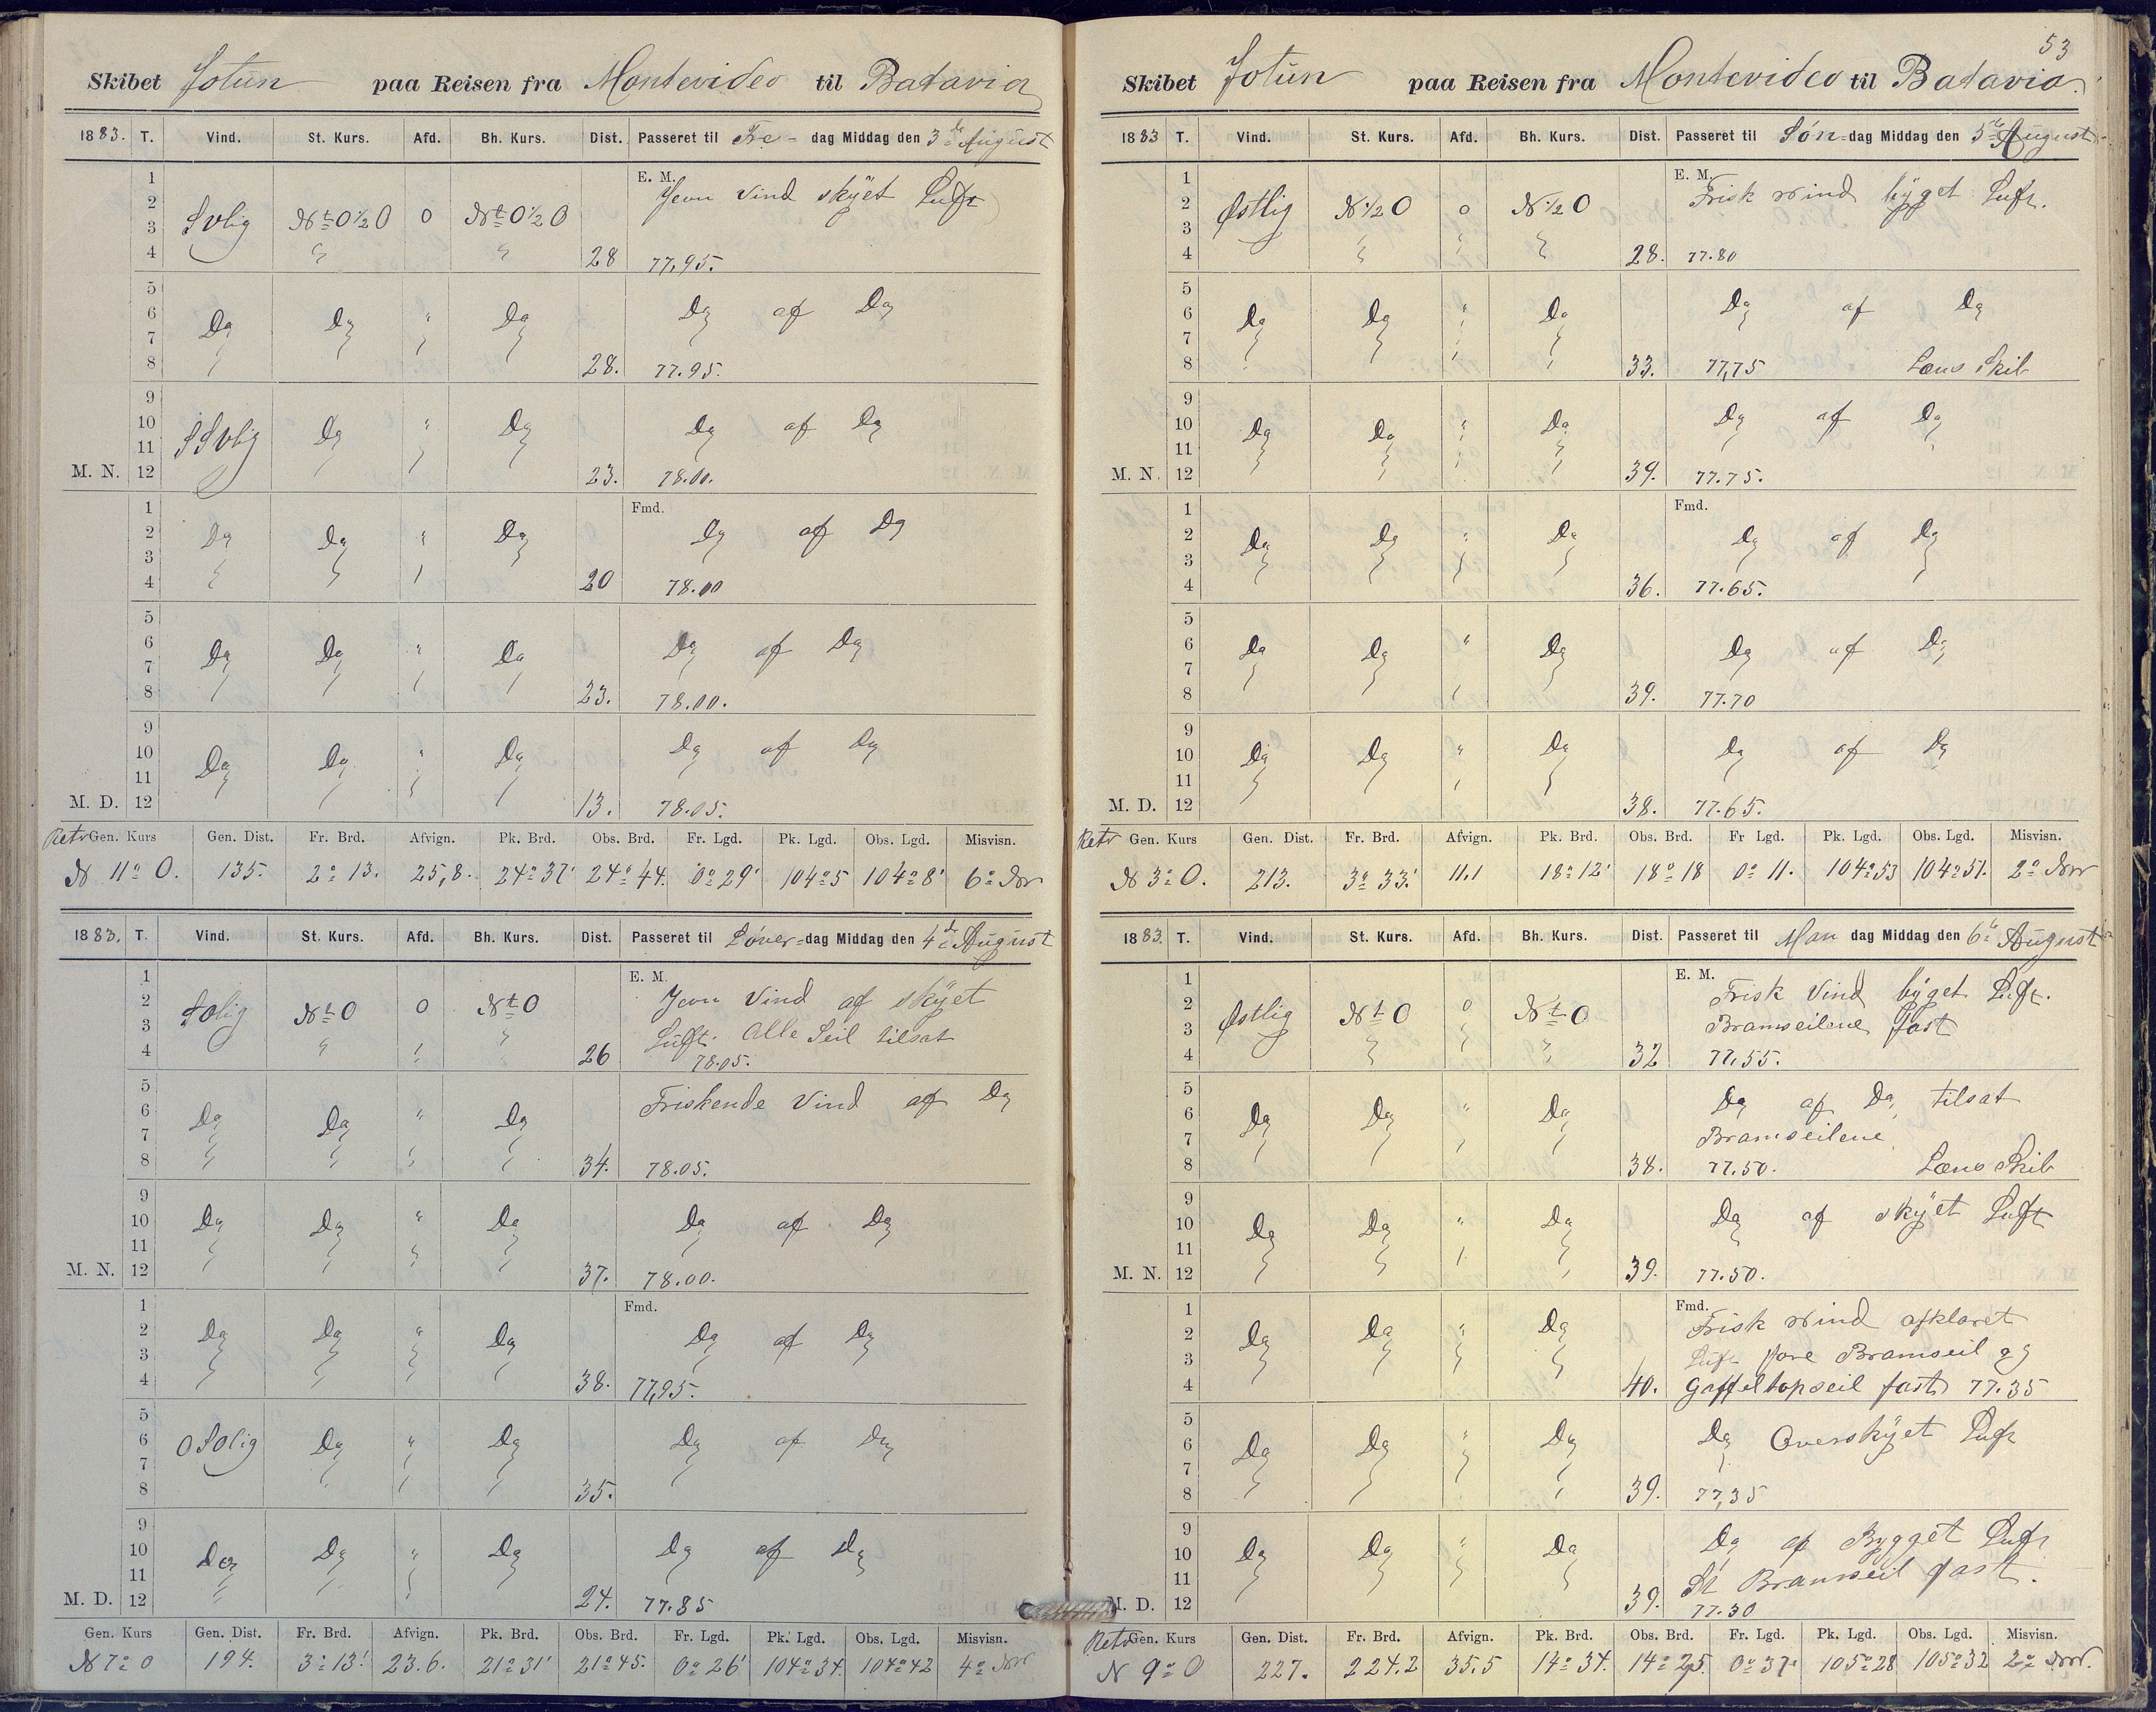 Skibet Jotun paa Reisen fra Montevideo til Batavia
1883. T. Vind. St. Kurs. Afd. Bh. Kurs. Dist. Passeret til Fre- dag Middag den 3de August
1 E. M. Jevn Vind skÿet Luft
2
3 SVlig Nt O½O 0 Nt O½O
4 28 77,95.
5
6 Do Do " Do Do af Do
7
8 28. 77.95.
9
10 SSVlig Do " Do Do af Do
11
M. N. 12 23. 78.00.
1 Fmd.
2 Do Do " Do Do af Do
3
4 20 78.00
5
6 Do Do " Do Do af Do
7
8 23. 78.00.
9
10 Do Do " Do Do af Do
11
M. D. 12 13. 78.05.
Retv Gen. Kurs Gen. Dist. Fr. Brd. Afvign. Pk. Brd. Obs. Brd. Fr. Lgd. Pk. Lgd. Obs. Lgd. Misvisn.
N 11° O. 135. 2° 13. 25,8. 24° 37' 24° 44. 0° 29' 104° 5 104° 8' 6° NW
1883. T. Vind. St. Kurs. Afd. Bh. Kurs. Dist. Passeret til Löver-dag Middag den 4de August
1 E. M. Jevn Vind af skÿet
2 SOlig Nt O 0 Nt O
3 Lüft. Alle Seil tilsat
4 26 78.05.
5 Friskende Vind af Do
6 Do Do " Do
7
8 34. 78.05.
9
10 Do Do " Do Do af Do
11
M. N. 12 37. 78.00.
1 Fmd.
2 Do Do " Do Do af Do
3
4 38. 77,95.
5
6 OSOlig Do " Do Do af Do
7
8 35.
9
10 Do Do " Do Do af Do
11
M. D. 12 24. 77.85
Gen. Kurs Gen. Dist. Fr. Brd. Afvign. Pk. Brd. Obs. Brd. Fr. Lgd. Pk. Lgd. Obs. Lgd. Misvisn.
N 7° O 194. 3° 13' 23.6. 21° 31' 21° 45. 0° 26' 104° 34. 104° 42 4° NW
53
Skibet Jotun paa Reisen fra Montevideo til Batavia.
1883 T. Vind. St. Kurs. Afd. Bh. Kurs. Dist. Passeret til Søn-dag Middag den 5te August
1 E. M. Frisk Wind bÿget Luft.
2 Østlig N½O 0 N½O
3
4 28. 77.80
5
6 Do Do " Do Do af Do
7
8 33. 77,75 Læns Skib
9
10 Do Do " Do Do af Do
11
M. N. 12 39. 77.75.
1 Fmd.
2 Do Do " Do Do af Do
3
4 36. 77.65.
5
6 Do Do " Do Do af Do
7
8 39. 77.70
9
10 Do Do " Do Do af Do
11
M. D. 12 38. 77.65.
Retv Gen. Kurs Gen. Dist. Fr. Brd. Afvign. Pk. Brd. Obs. Brd. Fr Lgd. Pk. Lgd. Obs. Lgd. Misvisn.
N 3° O. 213. 3° 33.' 11.1 18° 12' 18° 18 0° 11. 104° 53 104° 51. 2° NW
1883. T. Vind. St. Kurs. Afd. Bh. Kurs. Dist. Passeret til Man dag Middag den 6te August
1 E. M. Frisk Vind bÿget Luft.
2 Østlig Nt O 0 Nt O
3 Bramseilene fast
4 32 77,55.
5
6 Do Do " Do Do af Do tilsat
7 Bramseilene
8 38. 77.50. Læns Skib
9
10 Do Do " Do Do af skÿet Luft
11
M. N. 12 39. 77.50.
1 Fmd. Frisk Wind afklaret
2 Do Do " Do
3 Luft fore Bramseil og
4 40. Gaffeltopseil fast 77.35
5
6 Do Do " Do Do Overskÿet Luft
7
8 39. 77,35
9
10 Do Do " Do Do af Bygget Luft
11 St Bramseil fast.
M. D. 12 39. 77.30
Retv Gen. Kurs Gen. Dist. Fr. Brd. Afvign. Pk. Brd. Obs. Brd. Fr. Lgd. Pk. Lgd. Obs. Lgd. Misvisn.
N 9° O 227. 224.2 35.5 14° 34. 14° 25. 0° 37' 105° 28 105° 32 2° NW.